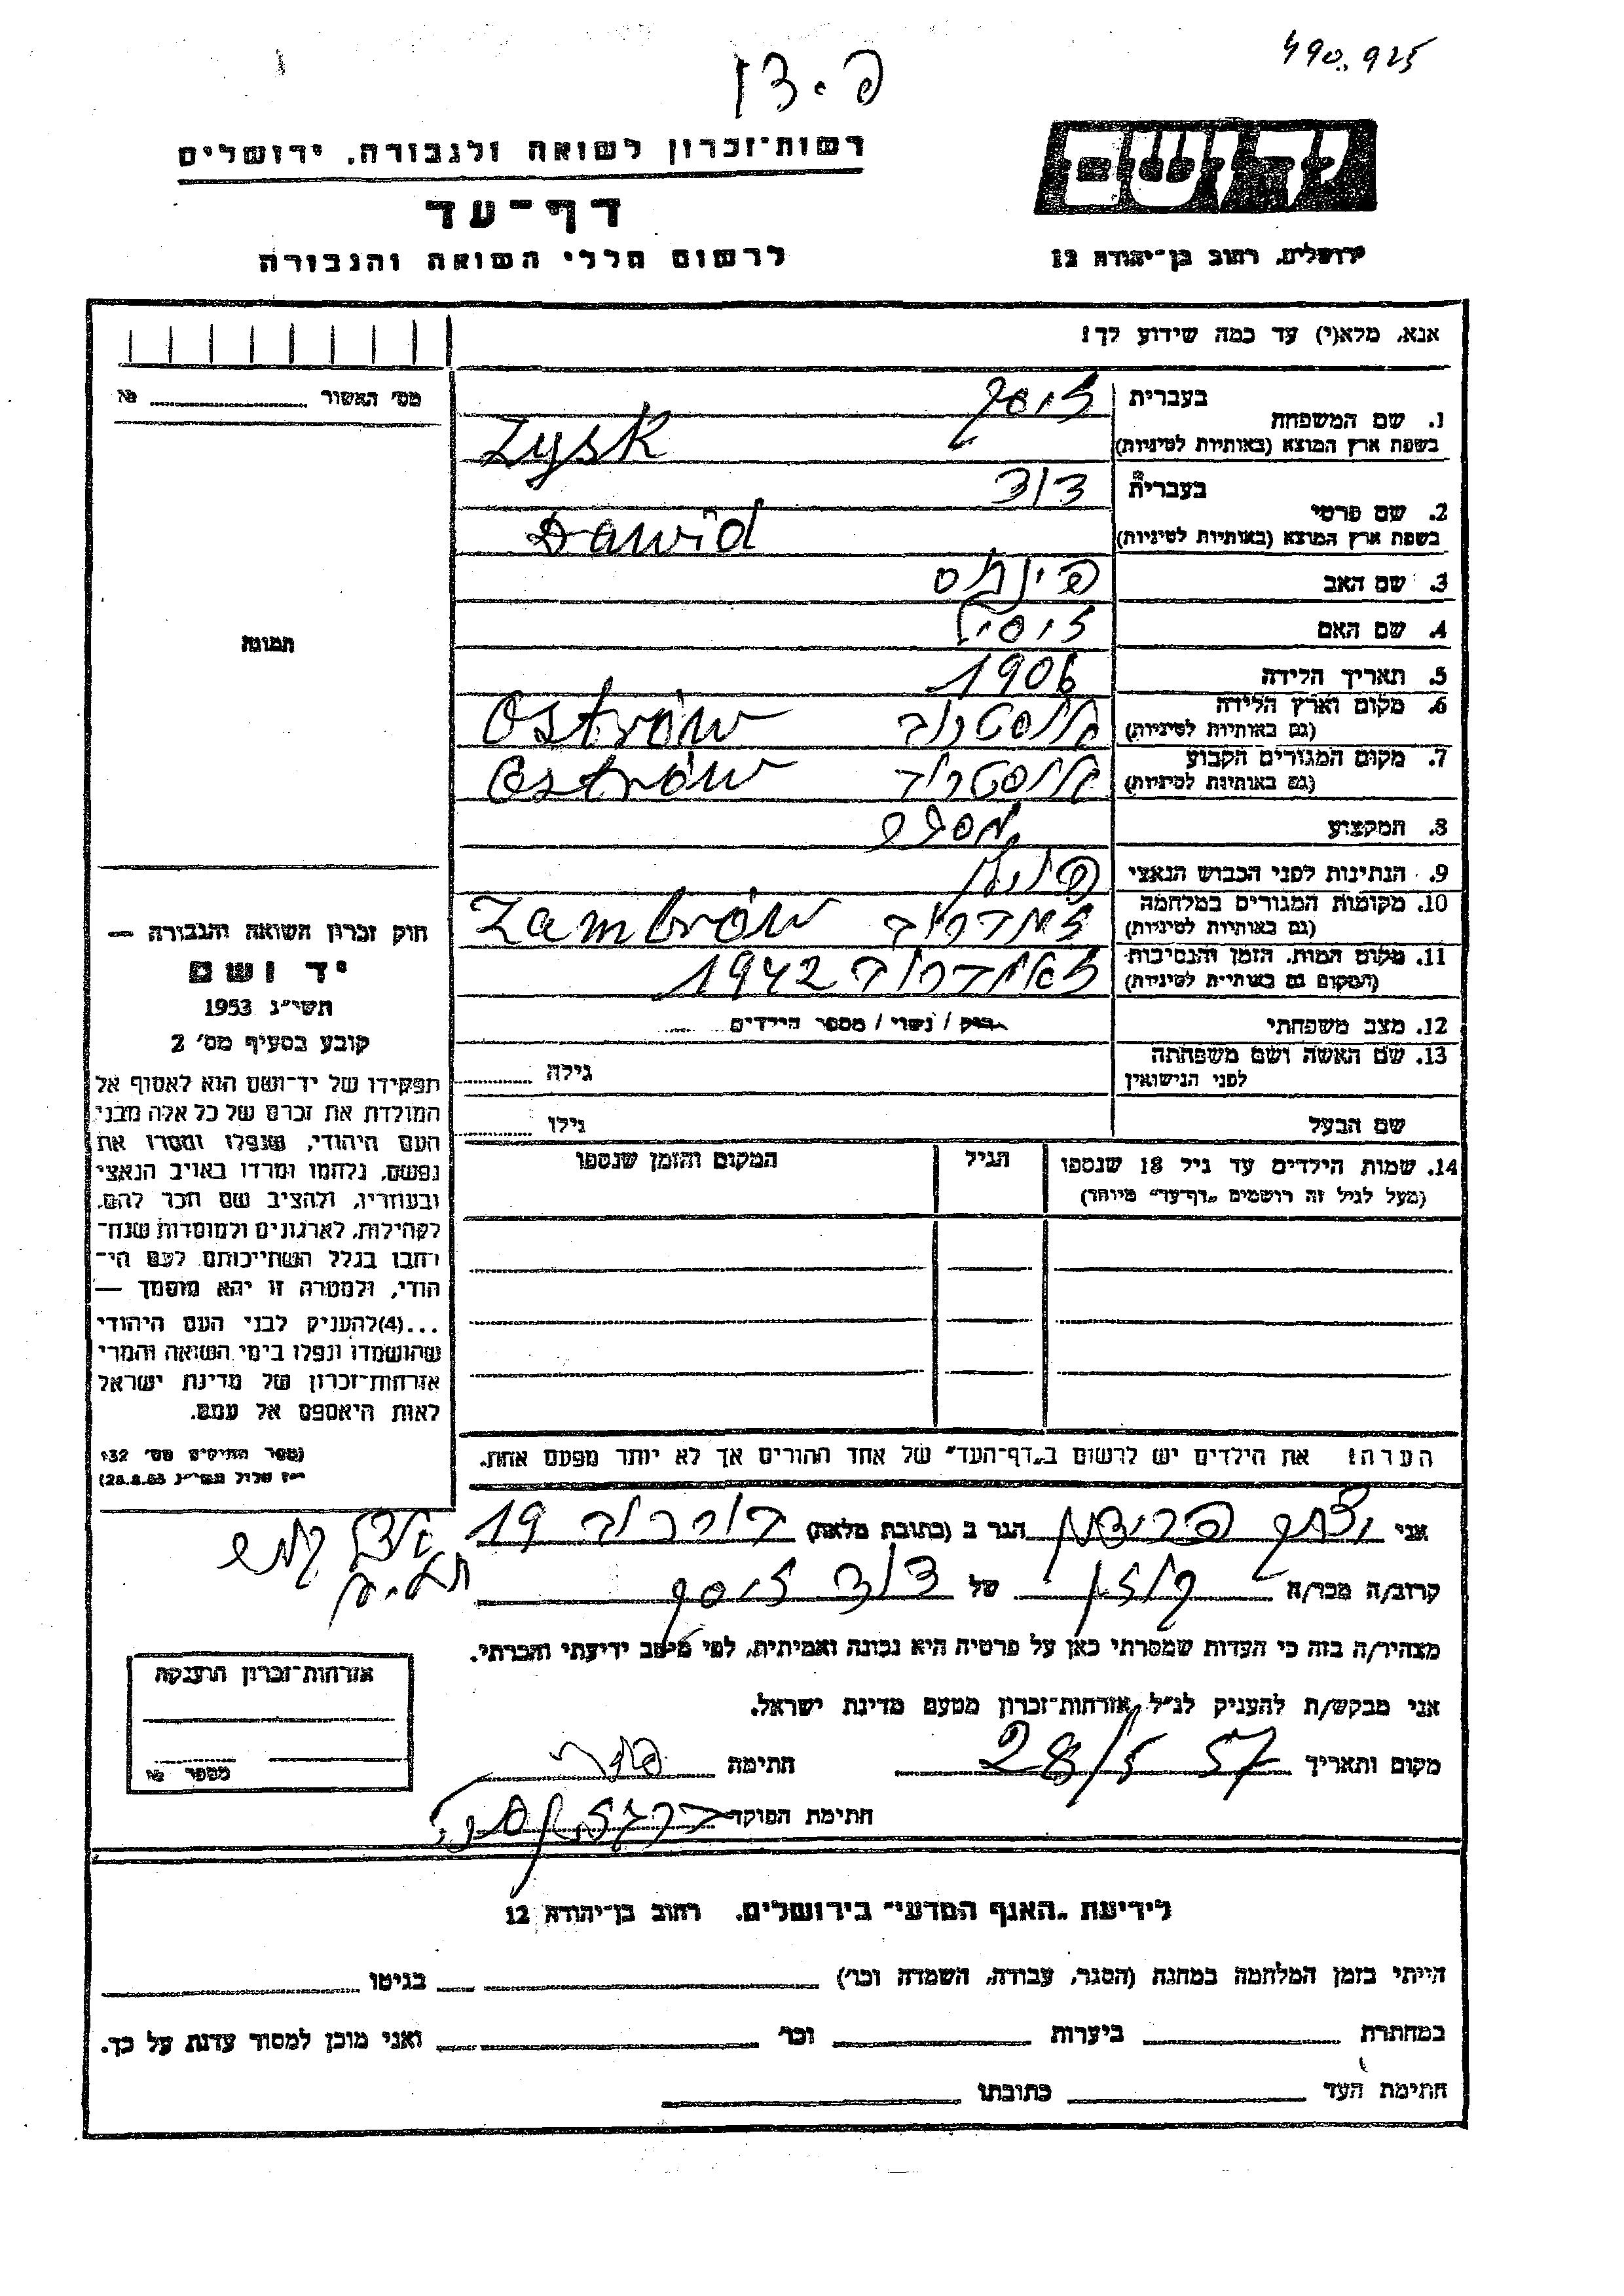 490.925
פ. דן
רשות־זכרון לשואה ולגבורה, ירושלים
דף־עד
לרשום חללי השואה והגבורה
ידושם
ירושלים, רחוב בן־יהודה 12
אנא, מלא(י) עד כמה שידוע לך!
מס׳ האשור № 
1. שם המשפחה בעברית זיסק
בשפת ארץ המוצא (באותיות לטיניות) Zysk
2. שם פרטי בעברית דוד
בשפת ארץ המוצא (באותיות לטיניות) Dawid
3. שם האב פינחס
4. שם האם
5. תאריך הלידה 1906
6. מקום וארץ הלידה (גם באותיות לטיניות) אוסטרוב Ostrów
7. מקום המגורים הקבוע (גם באותיות לטיניות) אוסטרוב Ostrów
8. המקצוע מסגר
9. הנתינות לפני הכבוש הנאצי
10. מקומות המגורים במלחמה (גם באותיות לטיניות) זמברוב Zambrów
11. מקום המות, הזמן והנסיבות (המקום גם באותיות לטיניות) זאמברוב 1942
12. מצב משפחתי רוק / נשוי / מספר הילדים
13. שם האשה ושם משפחתה לפני הנישואין גילה
שם הבעל גילו
14. שמות הילדים עד גיל 18 שנספו הגיל המקום והזמן שנספו
(מעל לגיל זה רושמים „דף־עד״ מיוחד)
הערה: את הילדים יש לרשום ב„דף־העד״ של אחד ההורים אך לא יותר מפעם אחת.
תמונה
חוק זכרון השואה והגבורה —
יד ושם
תשי״ג 1953
קובע בסעיף מס׳ 2
תפקידו של יד־ושם הוא לאסוף אל
המולדת את זכרם של כל אלה מבני
העם היהודי, שנפלו ומסרו את
נפשם, נלחמו ומרדו באויב הנאצי
ובעוזריו, ולהציב שם וזכר להם,
לקהילות, לארגונים ולמוסדות שנח־
רבו בגלל השתייכותם לעם הי־
הודי, ולמטרה זו יהא מוסמך —
...(4)להעניק לבני העם היהודי
שהושמדו ונפלו בימי השואה והמרי
אזרחות־זכרון של מדינת ישראל
לאות היאספם אל עמם.
(ספר החוקים מס׳ 132
י״ז אלול תשי״ג 28.8.53)
אני יצחק הגר ב (כתובת מלאה) 19
קרוב/ה מכר/ה של דוד זיסק
מצהיר/ה בזה כי העדות שמסרתי כאן על פרטיה היא נכונה ואמיתית, לפי מיטב ידיעתי והכרתי.
אני מבקש/ת להעניק לנ״ל אזרחות־זכרון מטעם מדינת ישראל.
מקום ותאריך 28/5 57 חתימה
חתימת הפוקד
אזרחות־זכרון הוענקה
מספר №
לידיעת „האגף המדעי״ בירושלים, רחוב בן־יהודה 12
הייתי בזמן המלחמה במחנה (הסגר, עבודה, השמדה וכו׳) בגיטו
במחתרת ביערות וכו׳ ואני מוכן למסור עדות על כך.
חתימת העד כתובתו